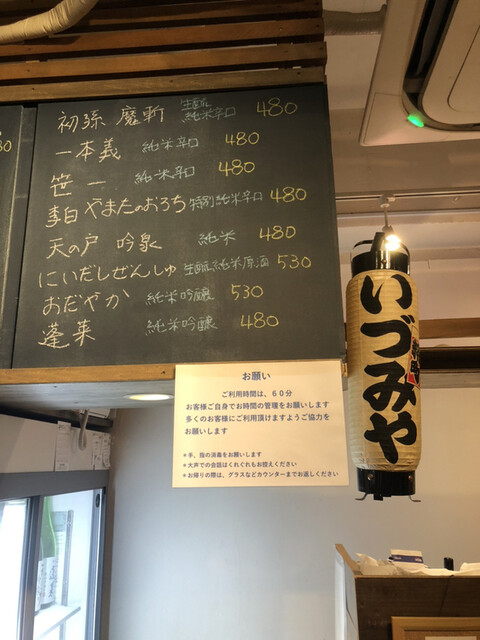 初孫 魔斬 生酛 純米辛口 480
一本義 純米辛口 480
笹一 純米辛口 480
李白 やまたのおろち 特別純米辛口 480
天の戸 吟泉 純米 480
にいだしぜんしゅ 生酛純米原酒 530
おだやか 純米吟醸 530
蓬莱 純米吟醸 480
お願い
ご利用時間は、60分
お客様ご自身でお時間の管理をお願いします
多くのお客様にご利用頂けますようご協力を
お願いします
＊手、指の消毒をお願いします
＊大声での会話はくれぐれもお控えください
＊お帰りの際は、グラスなどカウンターまでお返しください
いづみや